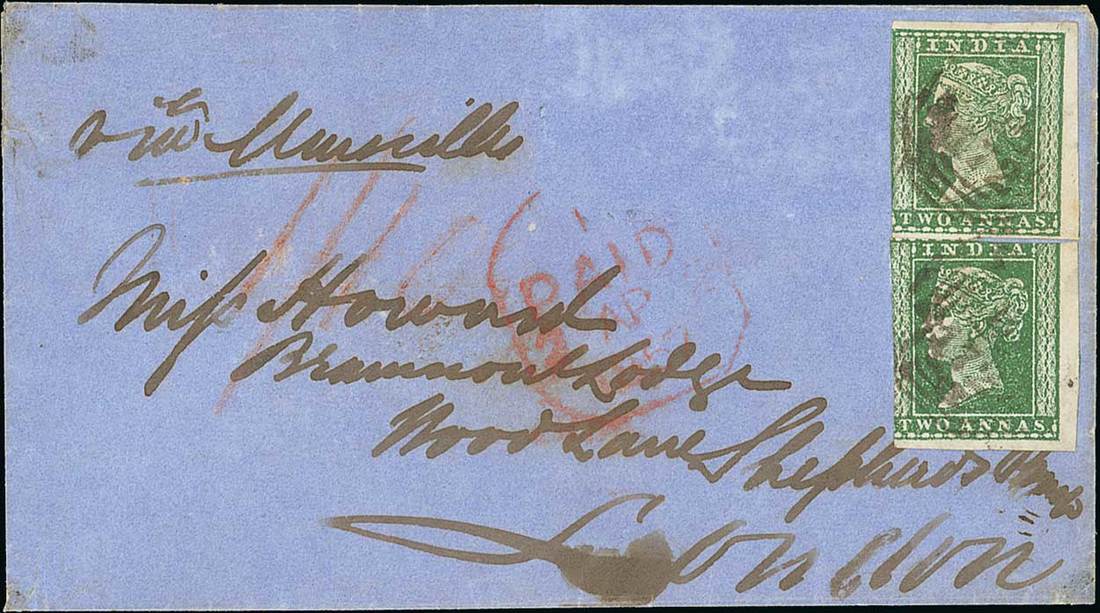 via Marseilles
Miss Howard
Lodge
Wood Lane, Shepherds
London
PAID
AP
INDIA
TWO ANNAS.
INDIA
TWO ANNAS.